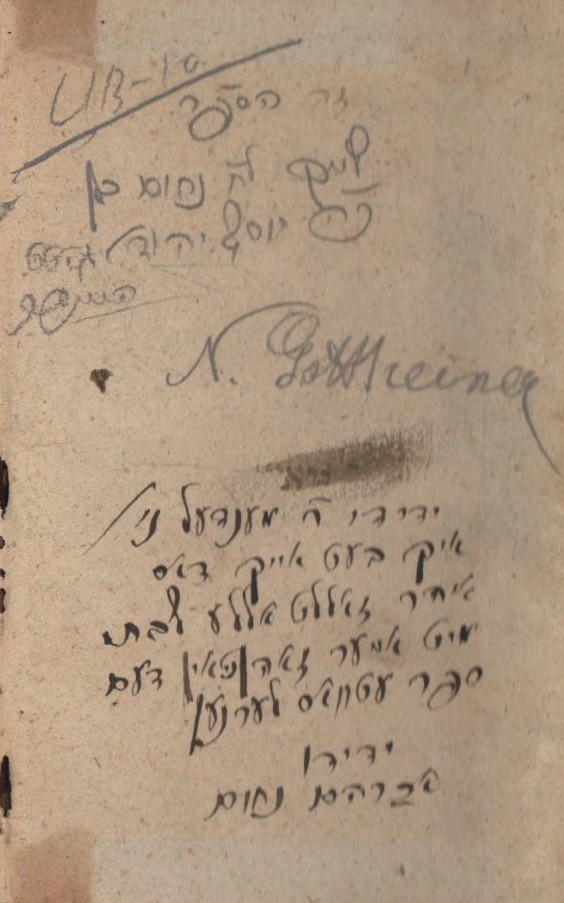 UB-10
זה הספר
שייך לה' נחום בן
יוסף יהודא
N. Gottreiner
ידידי ה' מענדעל ני'
איך בעט אייך דאס
איהר זאללט אללע שבת
מיט אייער זאהן פאין דעם
ספר עטוואס לערנען
ידידו
אברהם נחום